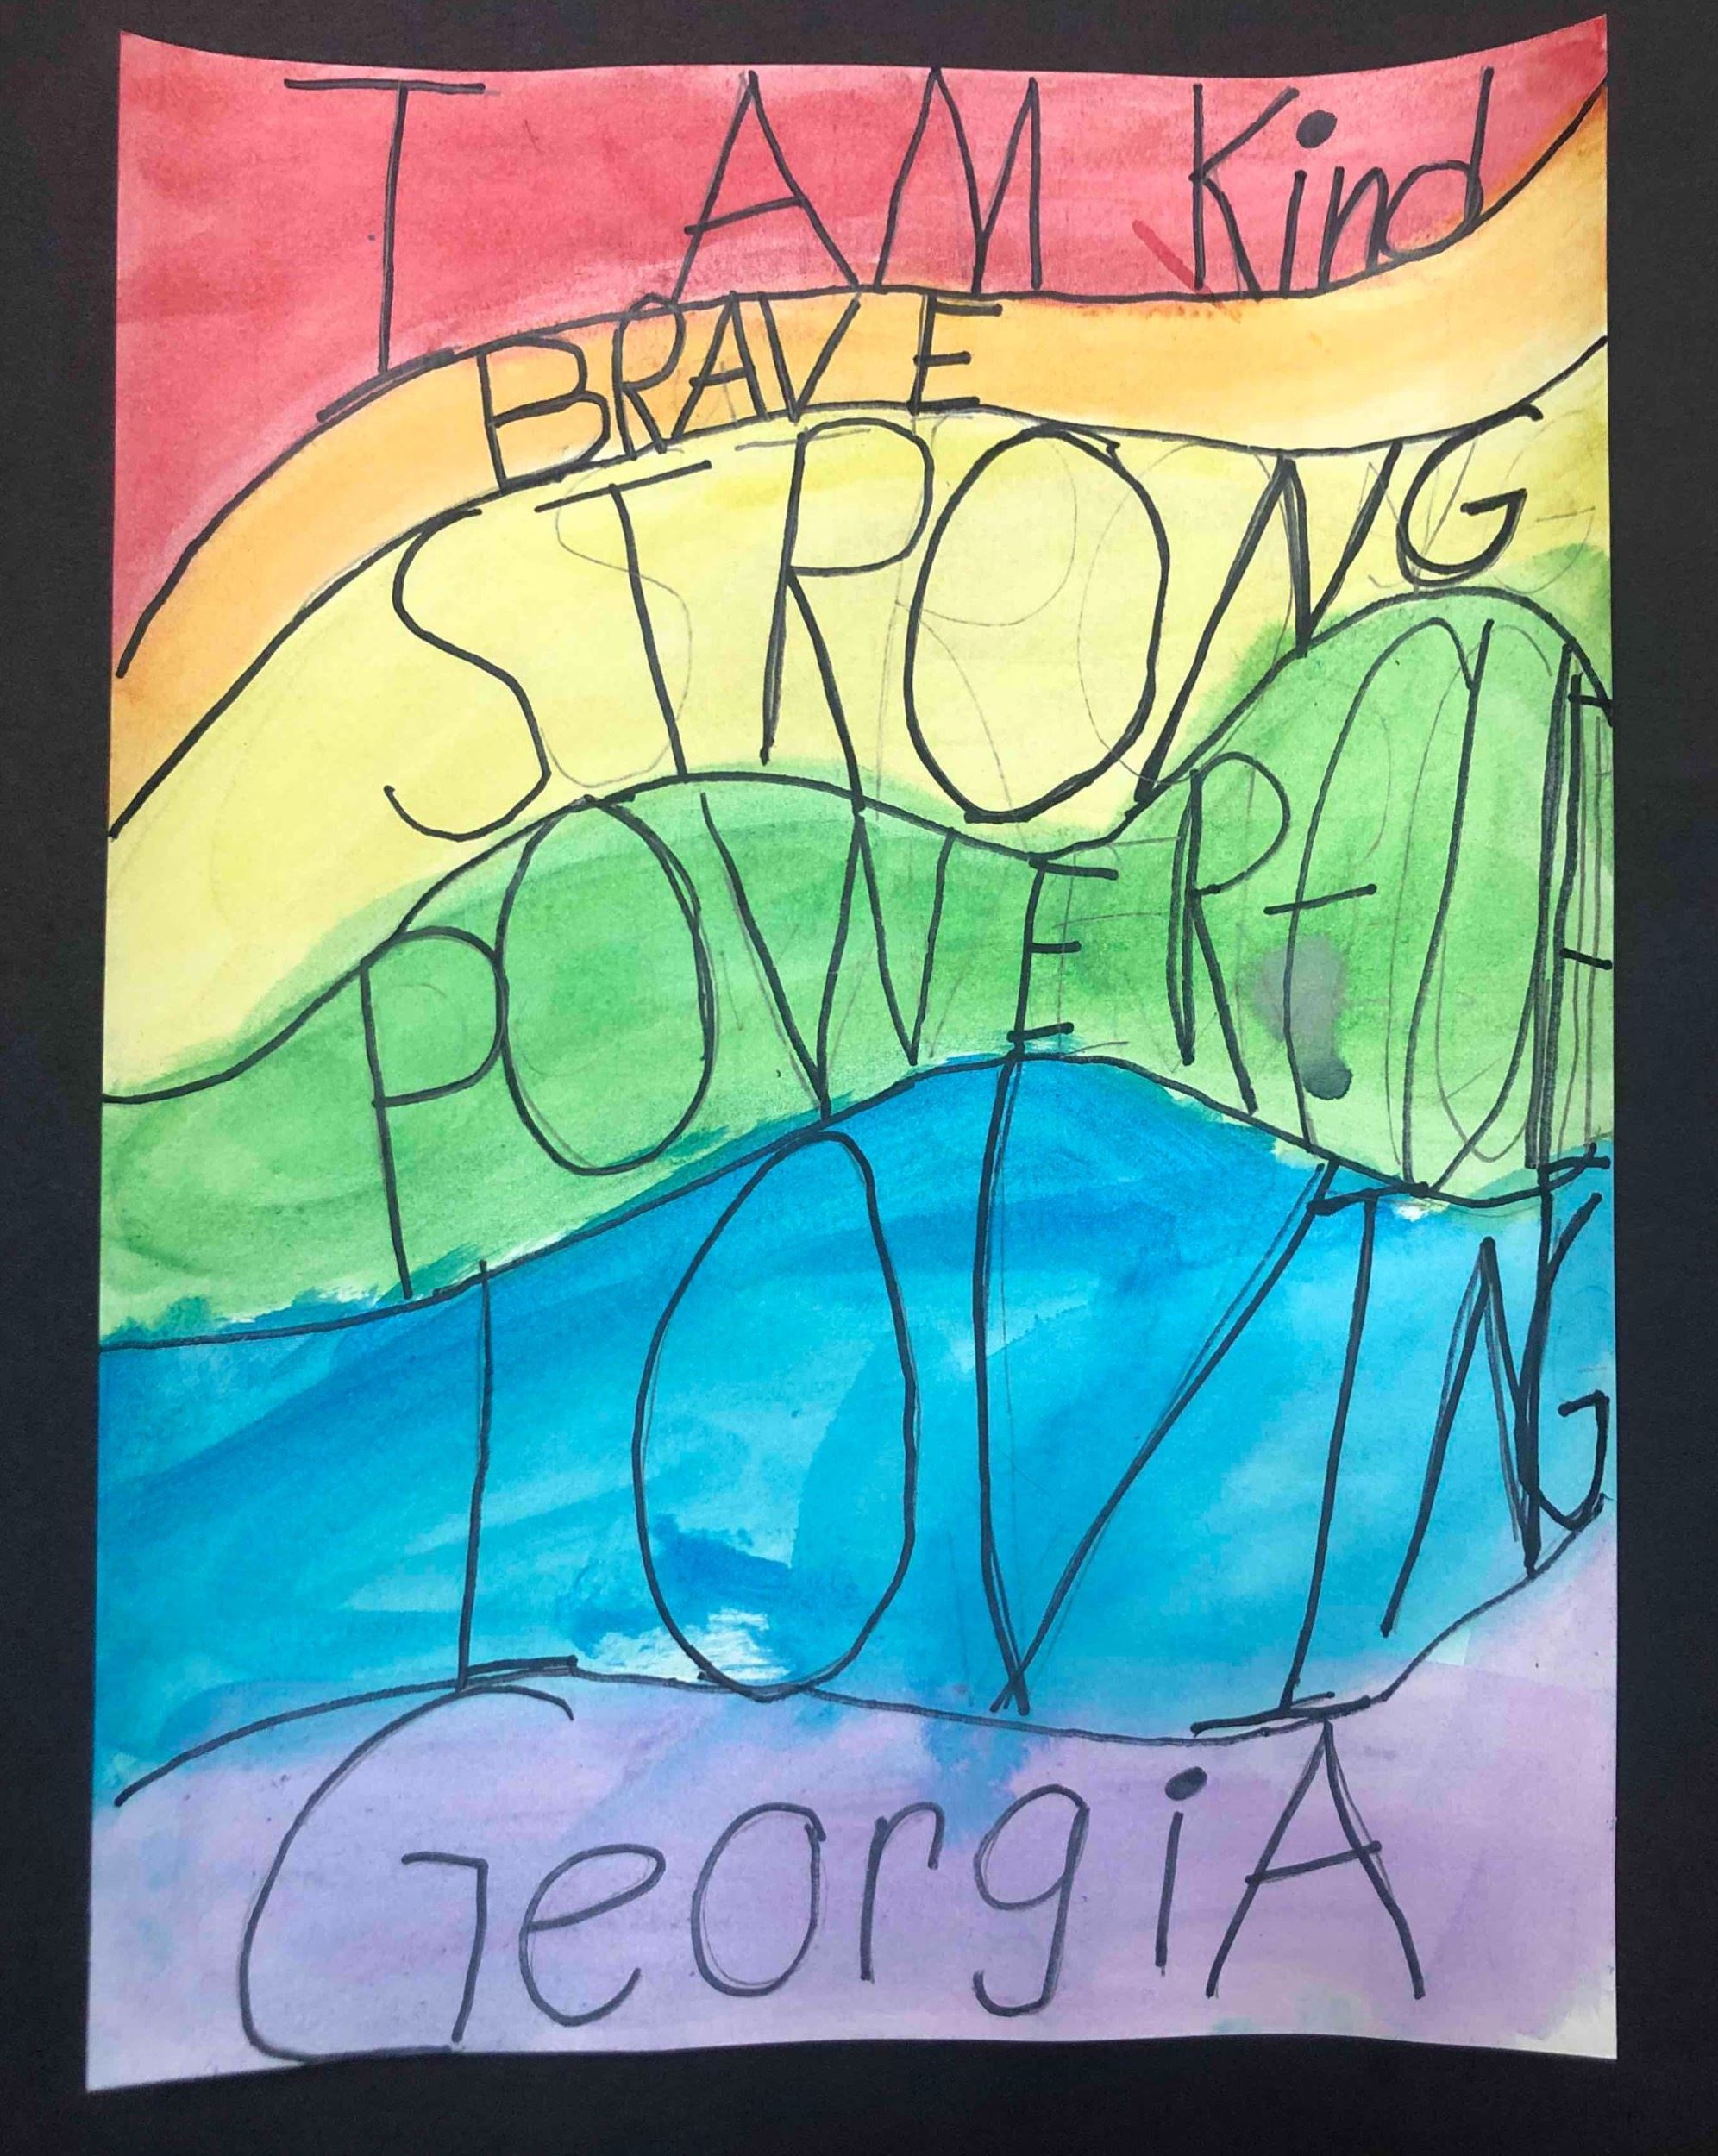 I AM Kind
BRAVE
STRONG
POWERFUL
LOVING
GeorgiA